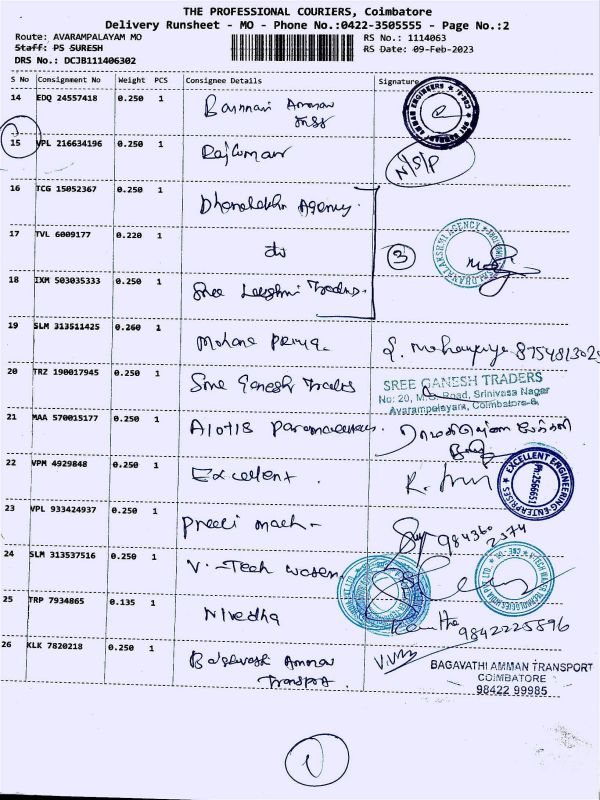 THE PROFESSIONAL COURIERS, Coimbatore
Delivery Runsheet - MO - Phone No.:0422-3505555 - Page No.:2
Route: AVARAMPALAYAM MO
RS No.: 1114063
Staff: PS SURESH
RS Date: 09-Feb-2023
DRS No.: DCJB111406302
S No Consignment No Weight PCS Consignee Details Signature
14 EDQ 24557418 0.250 1 Bannari Amman
15 VPL 216634196 0.250 1 Rajkumar N/S/P
16 TCG 15052367 0.250 1 Dhanalakshmi Agency.
17 TVL 6009177 0.220 1 do 3
18 IXM 503035333 0.250 1 Sree Lakshmi Traders.
19 SLM 313511425 0.260 1 Mohana Priya
20 TRZ 190017945 0.250 1 Sree Ganesh Traders
SREE GANESH TRADERS
No: 20, M.G. Road, Srinivasa Nagar
Avarampalayam, Coimbatore-6.
21 MAA 570015177 0.250 1
22 VPM 4929848 0.250 1 Excellent.
EXCELLENT ENGINEERING ENTERPRISES
Ph:2566651
23 VPL 933424937 0.250 1 Preeti mach-
984360
2574
24 SLM 313537516 0.250 1 V-Tech
25 TRP 7934865 0.135 1 Nivedha
9842225896
26 KLK 7820218 0.250 1 Bagavath Amman
Transport.
BAGAVATHI AMMAN TRANSPORT
COIMBATORE
98422 99985
1